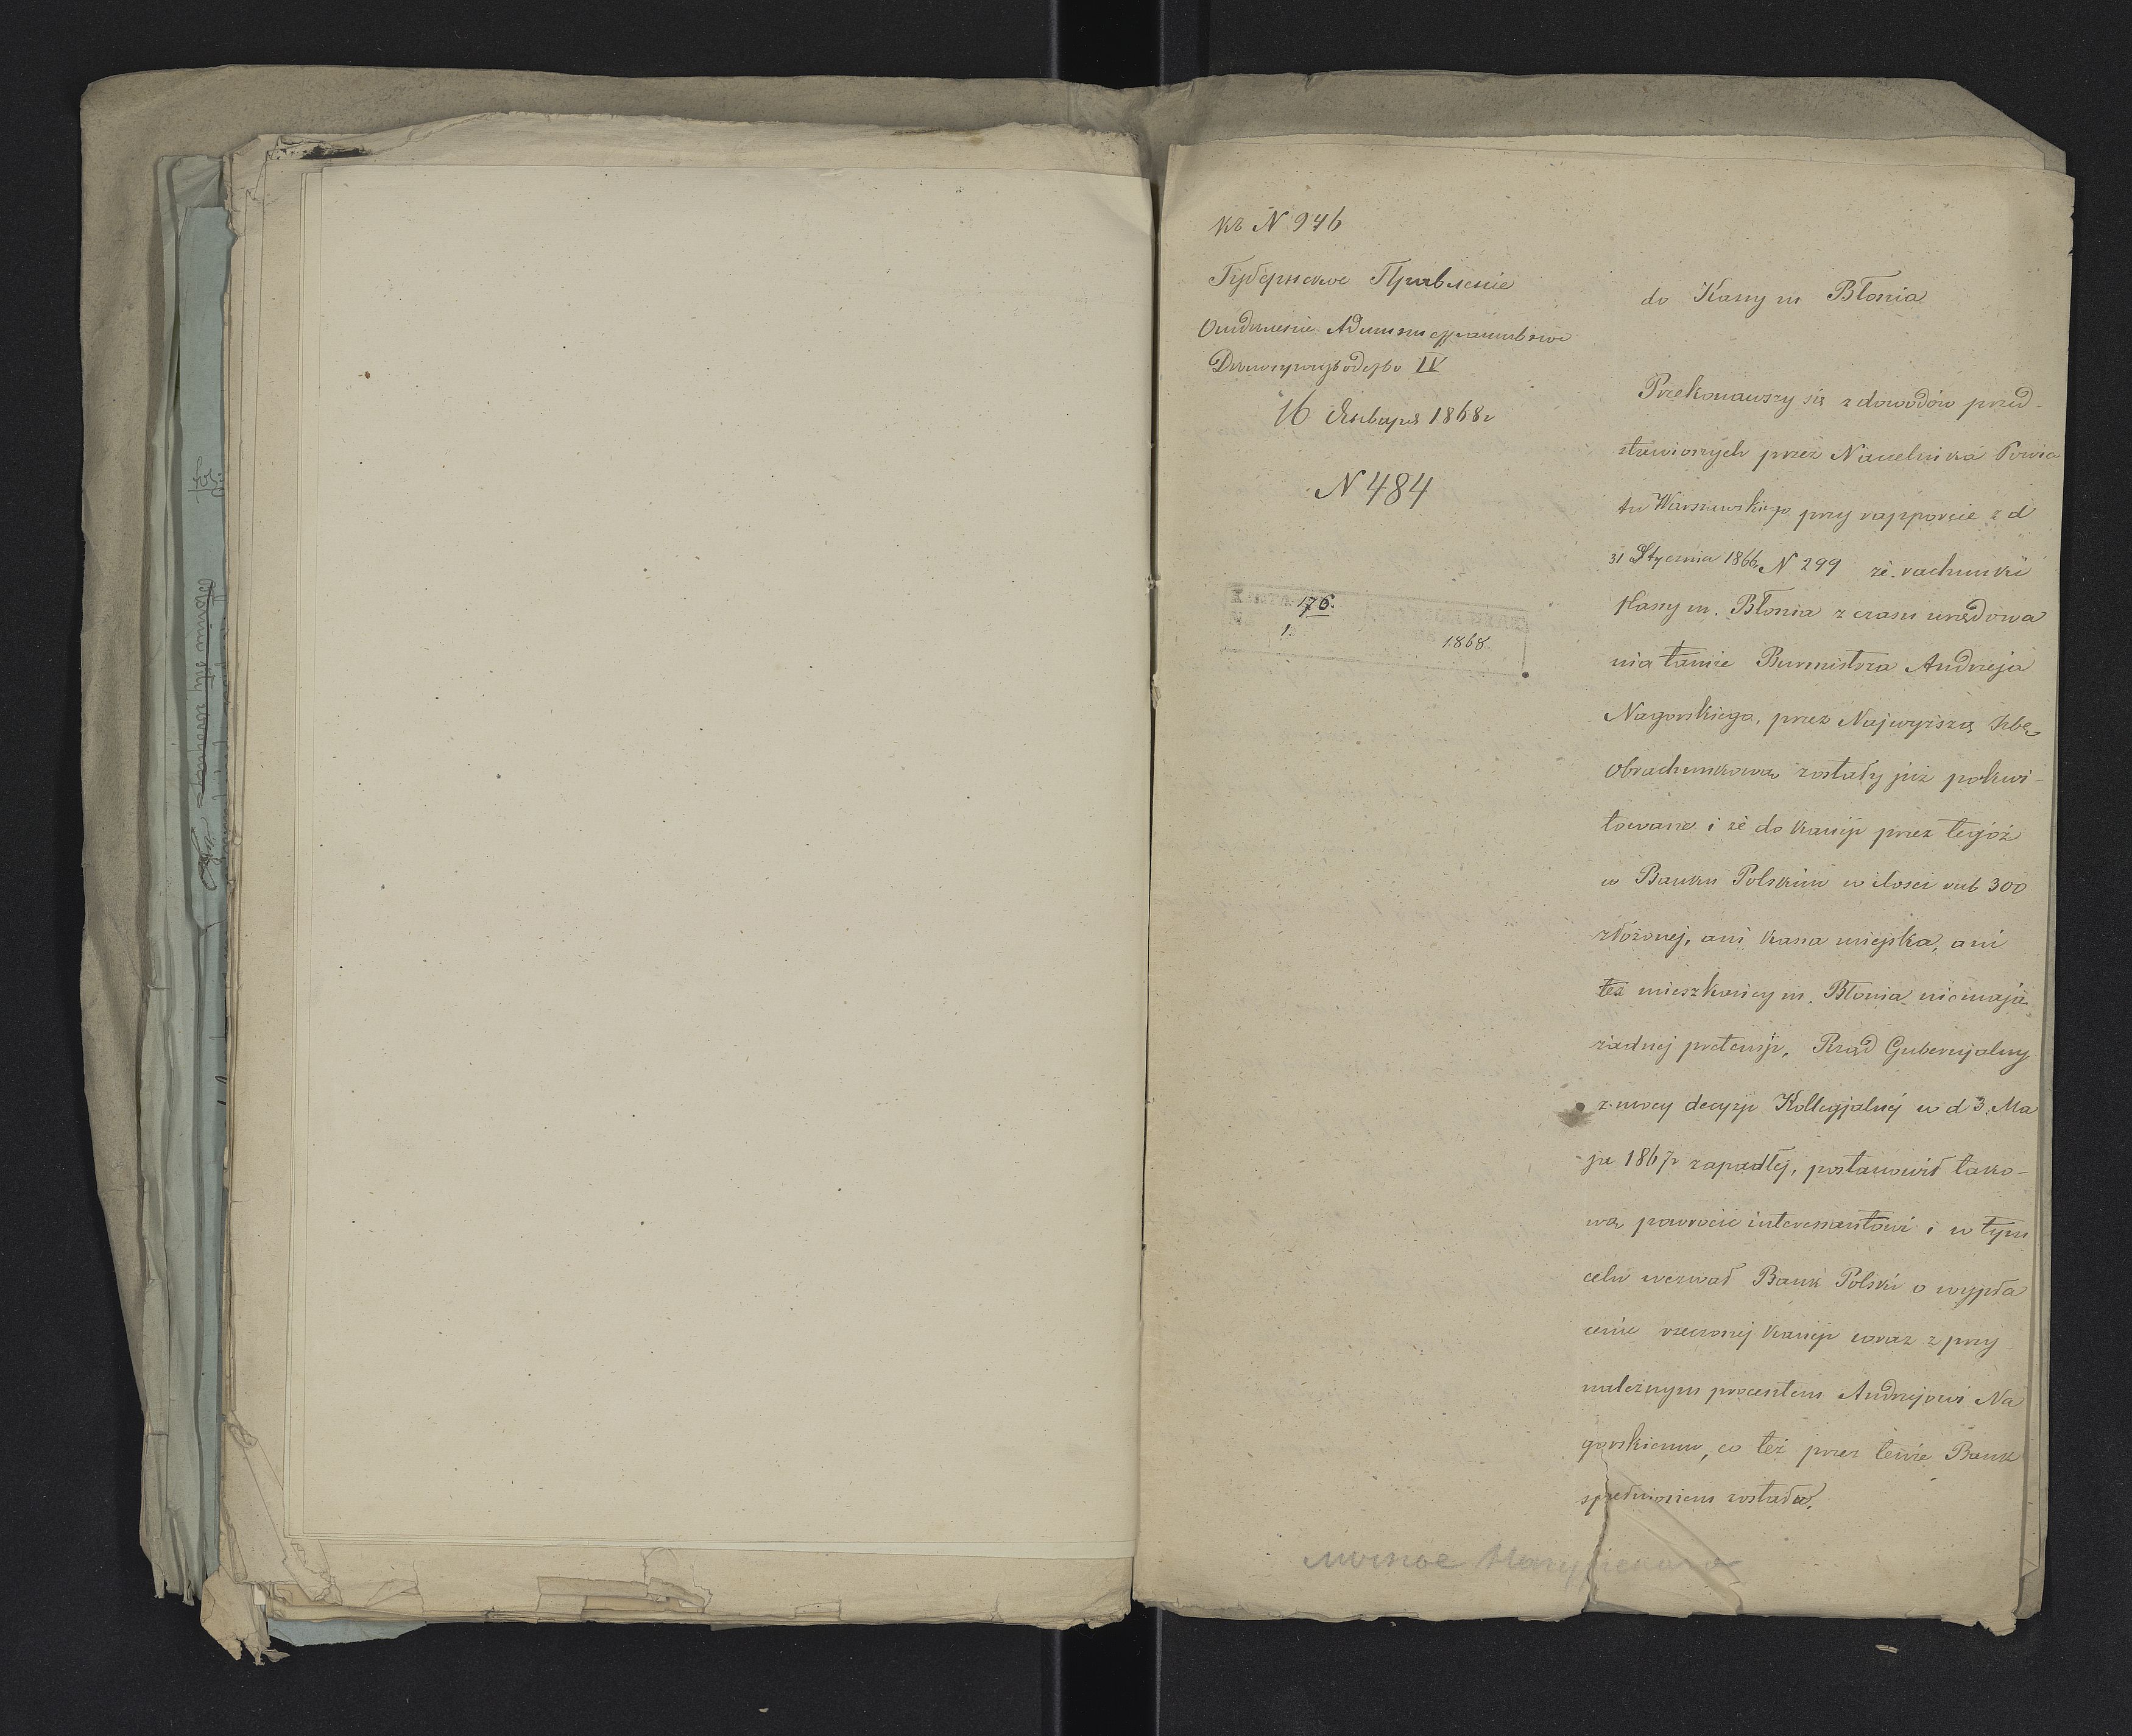 къ N 946
Губернское Правленіе
Отдѣленіе Административное
Дѣлопроизводство IV
16 Января 1868 г
N 484
176.
1.
1868.
do Kassy m Błonia
Przekonawszy się z dowodów przed-
stawionych przez Naczelnika Powia
tu Warszawskiego przy rapporcie z d
31 Stycznia 1866 N 299 że rachunki
Kassy m. Błonia z czasu urzędowa
nia tamże Burmistrza Andrzeja
Nagorskiego, przez Najwyższą Izbę
Obrachunkową zostały już pokwi-
towane i że do kaucji przez tegoż
w Banku Polskim w ilosci rub 300
złożonej, ani kassa miejska, ani
też mieszkańcy m. Błonia niemają
żadnej pretensji, Rząd Gubernjalny
z mocy decyzji Kollegjalnej w d 3. Ma
ja 1867 r zapadłej, postanowił tako-
wą powrócić interessantowi i w tym
celu wezwał Bank Polski o wypła
cenie rzeczonej kaucji wraz z przy
należnym procentem Andrzejowi Na
gorskiemu, co też przez tenże Bank
spełnionem zostało.